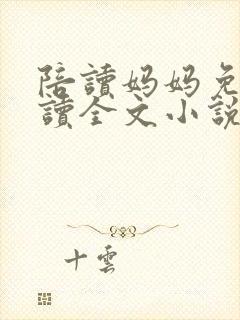 陪讀媽媽免
讀全文小說
十雲